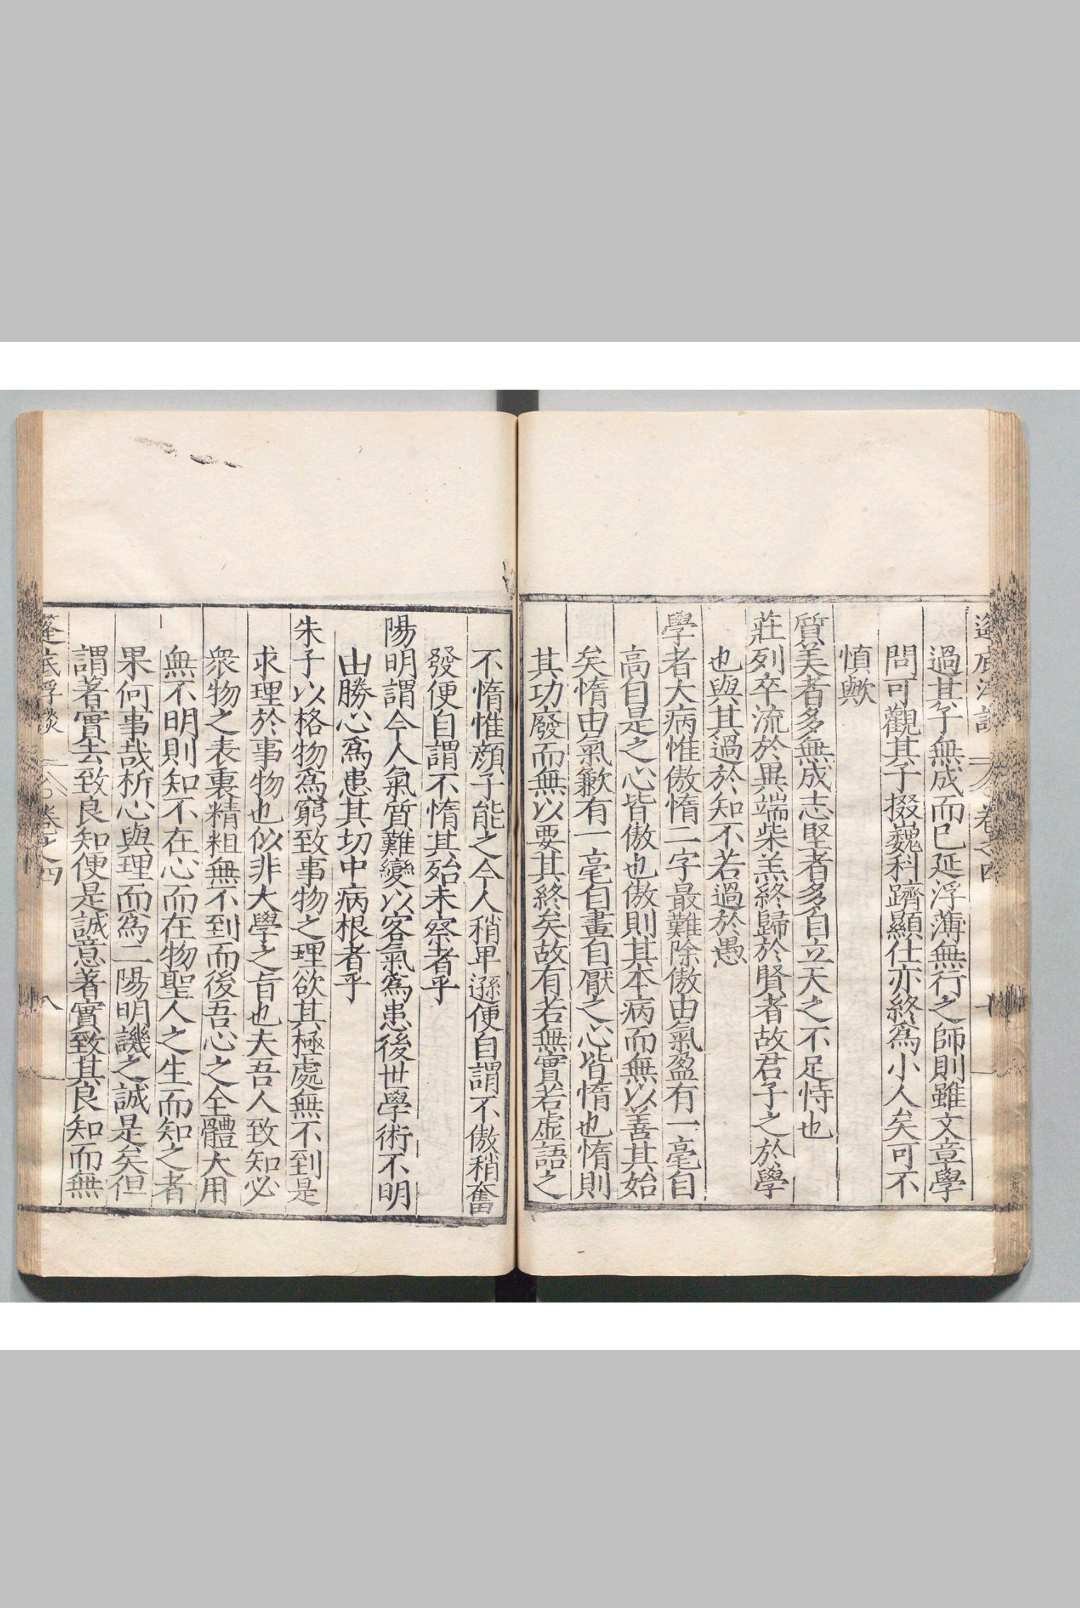 過其子無成而已延浮薄無行之師則雖文章學
問可觀其子掇巍科躋顯仕亦終爲小人矣可不
慎歟
質美者多無成志堅者多自立天之不足恃也
莊列卒流於異端柴羔終歸於賢者故君子之於學
也與其過於知不若過於愚
學者大病惟傲惰二字最難除傲由氣盈有一毫自
高自是之心皆傲也傲則其本病而無以善其始
矣惰由氣歉有一毫自畫自厭之心皆惰也惰則
其功廢而無以要其終矣故有若無實若虛語之
不惰惟顔子能之今人稍卑遜便自謂不傲稍奮
發便自謂不惰其殆未察者乎
陽明謂今人氣質難變以客氣爲患後世學術不明
由勝心爲患其切中病根者乎
朱子以格物爲窮致事物之理欲其極處無不到是
求理於事物也似非大學之旨也夫吾人致知必
衆物之表裏精粗無不到而後吾心之全體大用
無不明則知不在心而在物聖人之生而知之者
果何事哉析心與理而爲二陽明譏之誠是矣但
謂著實去致良知便是誠意著實致其良知而無
篷底浮談 卷之四 八